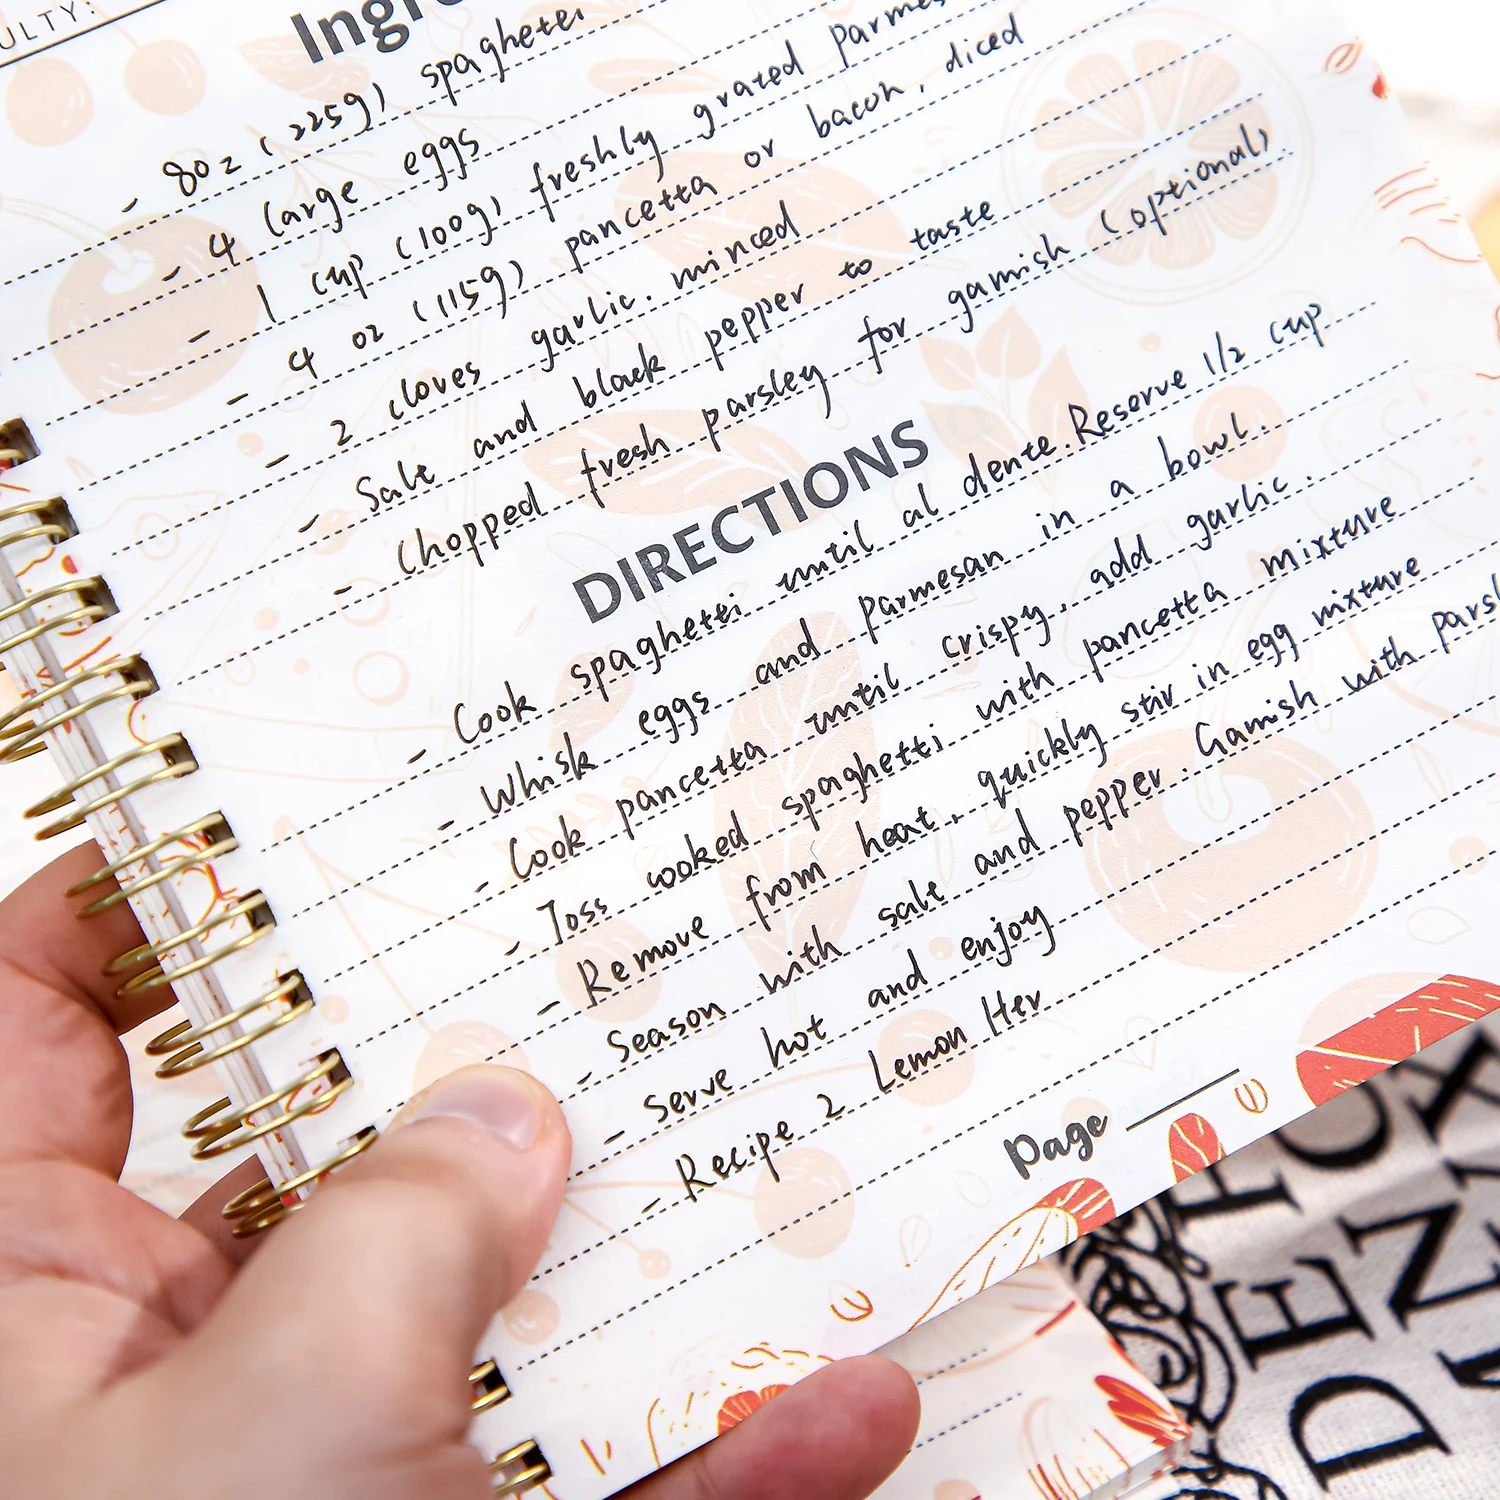 ULTY:
Ingre
- 8oz (225g) spaghetti
- 4 large eggs
- 1 cup (100g) freshly grated Parmes
- 4 oz (115g) pancetta or bacon, diced
- 2 cloves garlic. minced
- Salt and black pepper to taste
- Chopped fresh parsley for garnish (optional).
DIRECTIONS
- Cook spaghetti until al dente. Reserve 1/2 cup
- Whisk eggs and Parmesan in a bowl.
- Cook pancetta until crispy, add garlic.
- Toss cooked spaghetti with pancetta mixture
- Remove from heat, quickly stir in egg mixture
- Season with salt and pepper. Garnish with parsl
- Serve hot and enjoy
- Recipe 2 Lemon Her
Page
DE